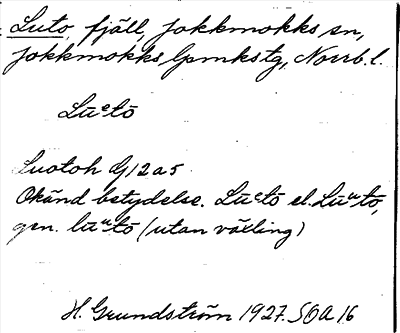 Luto, fjäll, Jokkmokks sn,
Jokkmokks lpmkstg, Norrb. l.
Lūᵉtō
Luotoh GJ 2 a 5
Okänd betydelse. Lūᵉtō el. Lūᵘtō,
gen. lūᵘtō (utan växling)
H. Grundström 1927. SOA 16